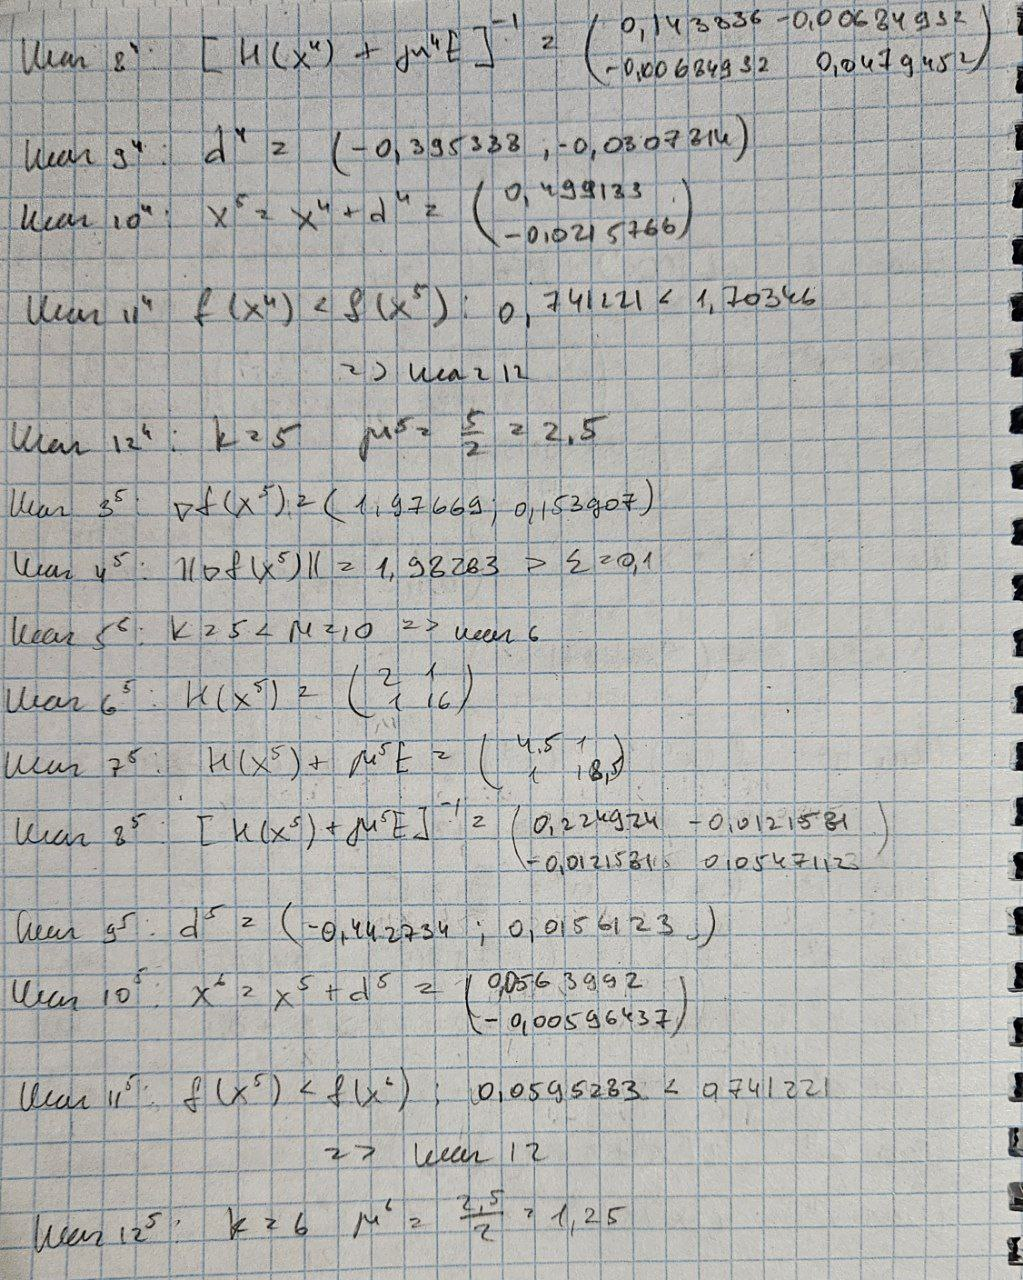 Шаг 8⁴: [H(x⁴) + μ⁴E]⁻¹ = (0,143836 -0,00684932
-0,00684932 0,0479452)
Шаг 9⁴: d⁴ = (-0,395338 ; -0,0307314)
Шаг 10⁴: x⁵ = x⁴ + d⁴ = (0,499133
-0,0215766)
Шаг 11⁴ f(x⁴) < f(x⁵): 0,741221 < 1,70346
=> шаг 12
Шаг 12⁴: k=5 μ⁵ = 5/2 = 2,5
Шаг 3⁵: ∇f(x⁵) = (1,97669; 0,153907)
Шаг 4⁵: ||∇f(x⁵)|| = 1,98263 > Σ=0,1
Шаг 5⁶: k=5 < M=10 => шаг 6
Шаг 6⁵: H(x⁵) = (2 1
1 16)
Шаг 7⁵: H(x⁵) + μ⁵E = (4,5 1
1 18,5)
Шаг 8⁵: [H(x⁵) + μ⁵E]⁻¹ = (0,224924 -0,0121581
-0,0121581 0,0547112)
Шаг 9⁵: d⁵ = (-0,442734 ; 0,0156123)
Шаг 10⁵: x⁶ = x⁵ + d⁵ = (0,0563992
-0,00596437)
Шаг 11⁵: f(x⁵) < f(x⁶): 0,0595233 < 0,741221
=> шаг 12
Шаг 12⁵: k=6 μ⁶ = 2,5/2 = 1,25